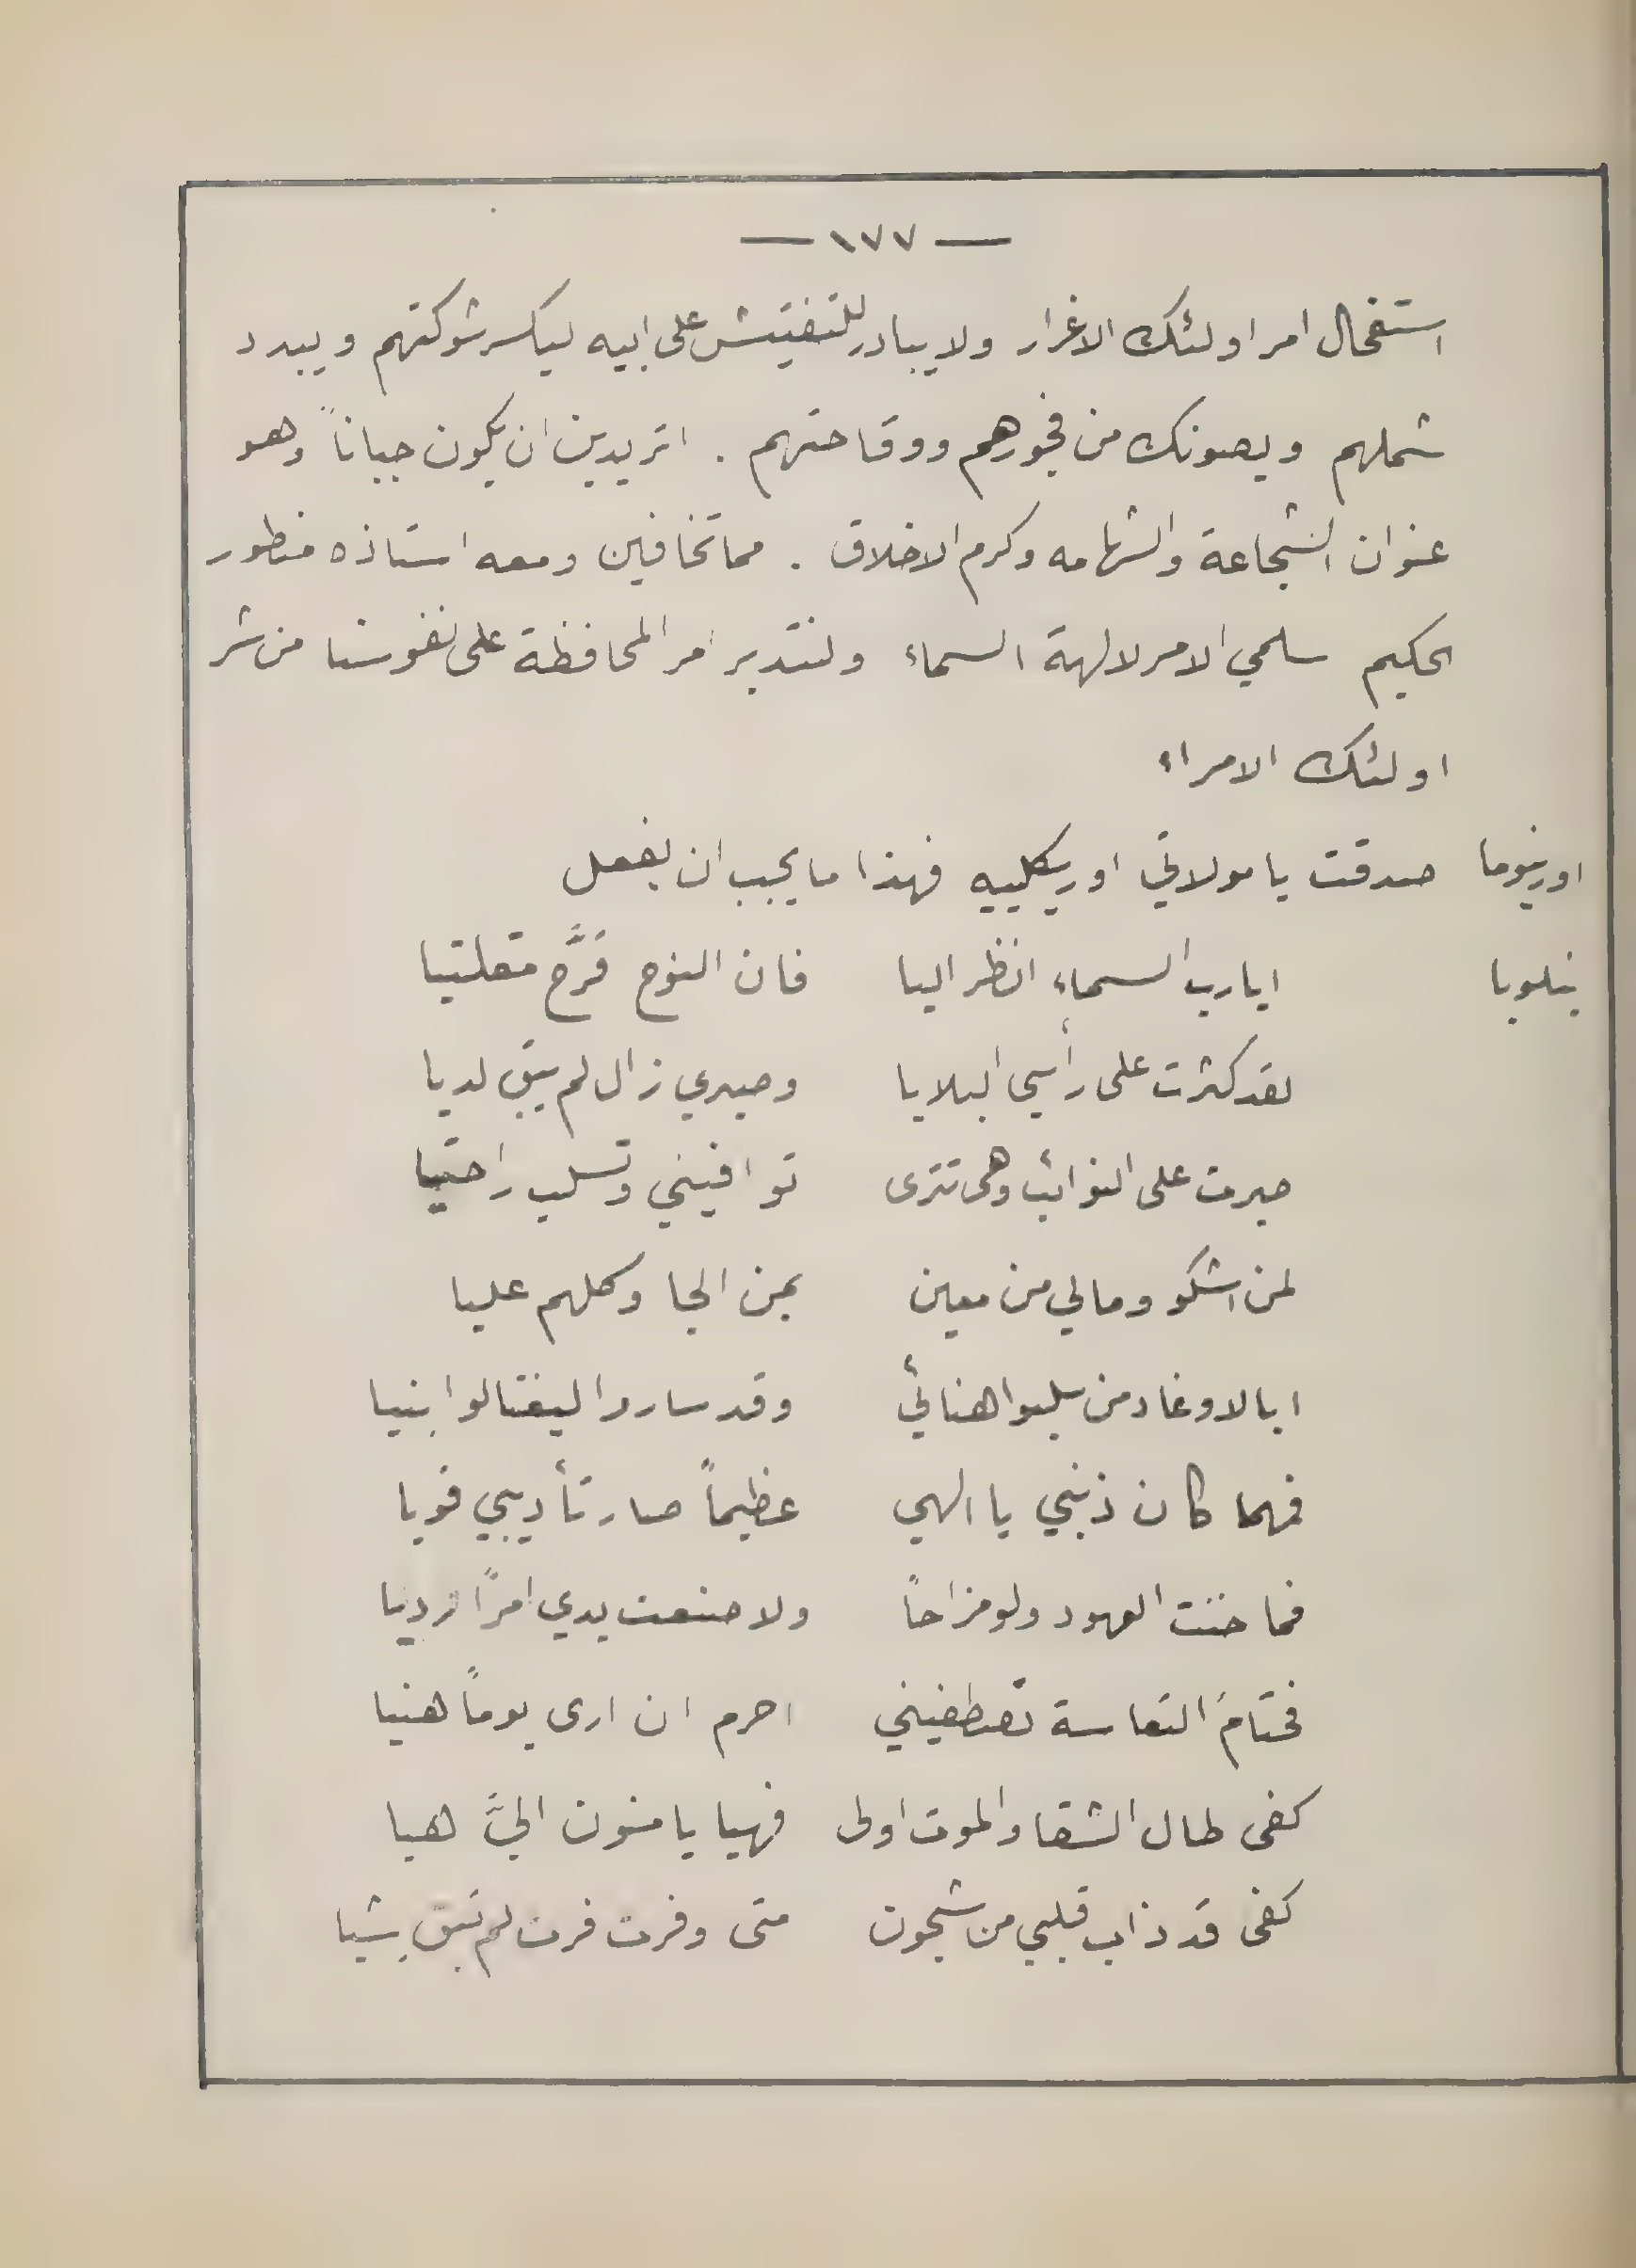 — ١٧٧ —
استفحال امر اولئك الاغرار ولا يبادر للتفتيش على ابيه ليكسر شوكتهم ويبدد
شملهم ويصونك من فجورهم ووقاحتهم . اتريدين ان يكون جباناً وهو
عنوان الشجاعة والشهامه وكرم الاخلاق . مما تخافين ومعه استاذه منطور
الحكيم سلمي الامر لالهة السماء ولنتدبر امر المحافظة على نفوسنا من شر
اولئك الامراء
اورينوما صدقت يا مولاتي اوريكلييه فهذا ما يجب ان يفعل
بنلوبا ايا رب السماء انظر اليا فان النوح قَرَّح مقلتيا
لقد كثرت على رأسي البلايا وصبري زال لم يبق لديا
صبرت على النوائب وهى تترى توافيني وتسلب راحتيا
لمن اشكو ومالي من معين بمن الجا وكلهم عليا
ابا لاوغاد من سلبوا هنائي وقد ساروا ليغتالوا بنيا
فمهما كان ذنبي يا الهي عظيماً صار تأديبي قويا
فما خنت العهود ولو مزاحاً ولا صنعت يدي امرًا رديا
فختامَ التعاسة تصطفيني احرم ان ارى يوماً هنيا
كفى طال الشقا والموت اولى فهيا يا منون اليَّ هيا
كفى قد ذاب قلبي من شجون متى وفرت فرت لم تبق شيا